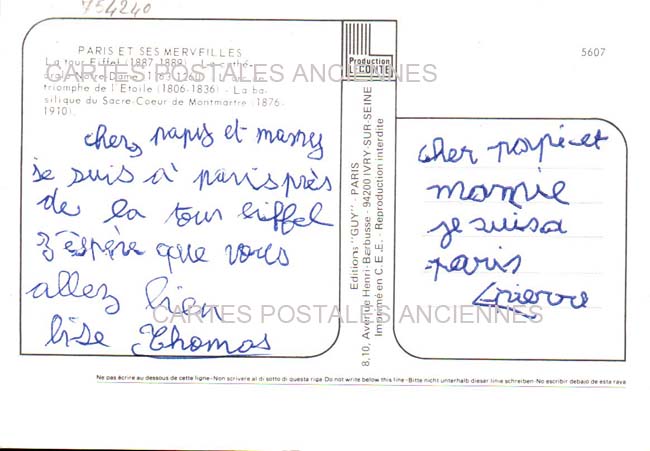 754240
PARIS ET SES MERVEILLES
La tour Eiffel (1887-1889) - La cathé-
drale Notre-Dame (1163-1260)
triomphe de l'Etoile (1806-1836) - La ba-
silique du Sacré-Coeur de Montmartre (1876-
1910).
CARTES POSTALES ANCIENNES
chers papys et mamy
je suis à paris près
de la tour eiffel
j'éspère que vous
allez bien
lise Thomas
Production
LECONTE
Editions "GUY" - PARIS
8,10, Avenue Henri-Barbusse - 94200 IVRY-SUR-SEINE
Imprimé en C.E.E. - Reproduction interdite
5607
cher papi et
mamie
je suis a
paris
pierre
CARTES POSTALES ANCIENNES
Ne pas écrire au dessous de cette ligne-Non scrivere al di sotto di questa riga Do not write below this line-Bitte nicht unterhalb dieser linie schreiben-No escribir debajo de esta raya